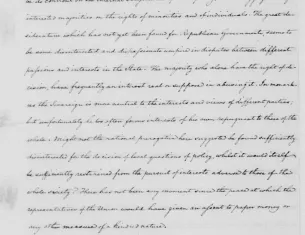 interested majorities on the rights of minorities and of individuals. The great de-
sideratum which has not yet been found for Republican Governments, seems to
be some disinterested and dispassionate umpire in disputes between different
passions and interests in the State. The majority who alone have the right of de-
cision, have frequently an interest real or supposed in abusing it. In monarch-
ies the Sovereign is more neutral to the interests and views of different parties;
but unfortunately he too often forms interests of his own repugnant to those of the
whole. Might not the national prerogative here suggested be found sufficiently
disinterested for the decision of local questions of policy, whilst it would itself
be sufficiently restrained from the pursuit of interests adverse to those of the
whole Society? There has not been any moment since the peace at which the
representatives of the Union would have given an assent to paper money or
any other measure of a kindred nature.